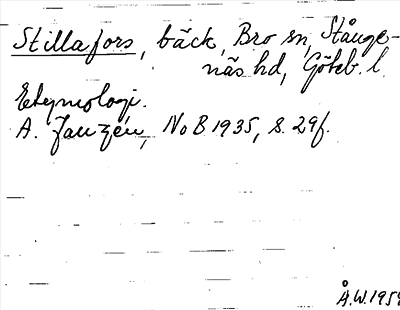 Stillafors, bäck, Bro sn, Stånge-
näs hd, Göteb. l.
Etymologi.
A. Janzén, NoB 1935, s. 29f.
Å.W. 1959